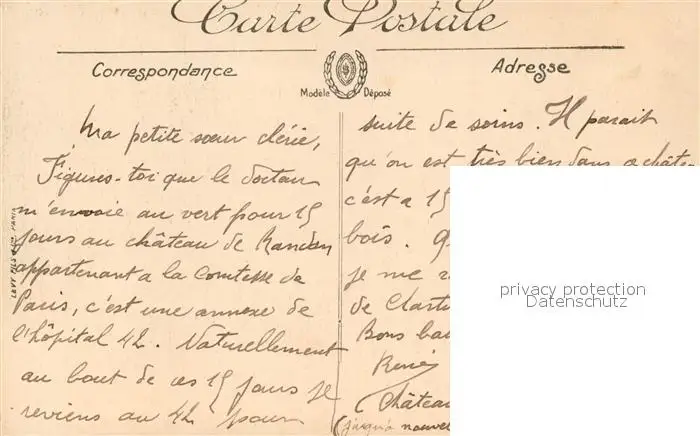 Carte Postale
Correspondance
Adresse
Modèle Déposé
Ma petite sœur chérie,
Figures-toi que le docteur
m'envoie au vert pour 15
jours au château de Randan
appartenant a la Comtesse de
Paris, c'est une annexe de
l'hôpital 42. Naturellement
au bout de ces 15 jours je
reviens au 42 pour
suite de soins. Il parait
qu'on est très bien dans ce châte
c'est a 15
bois.
je me
de Clart
Bons bai
René
Château
(jusqu'à nouvel
LEVY FILS & Cie PARIS
privacy protection
Datenschutz